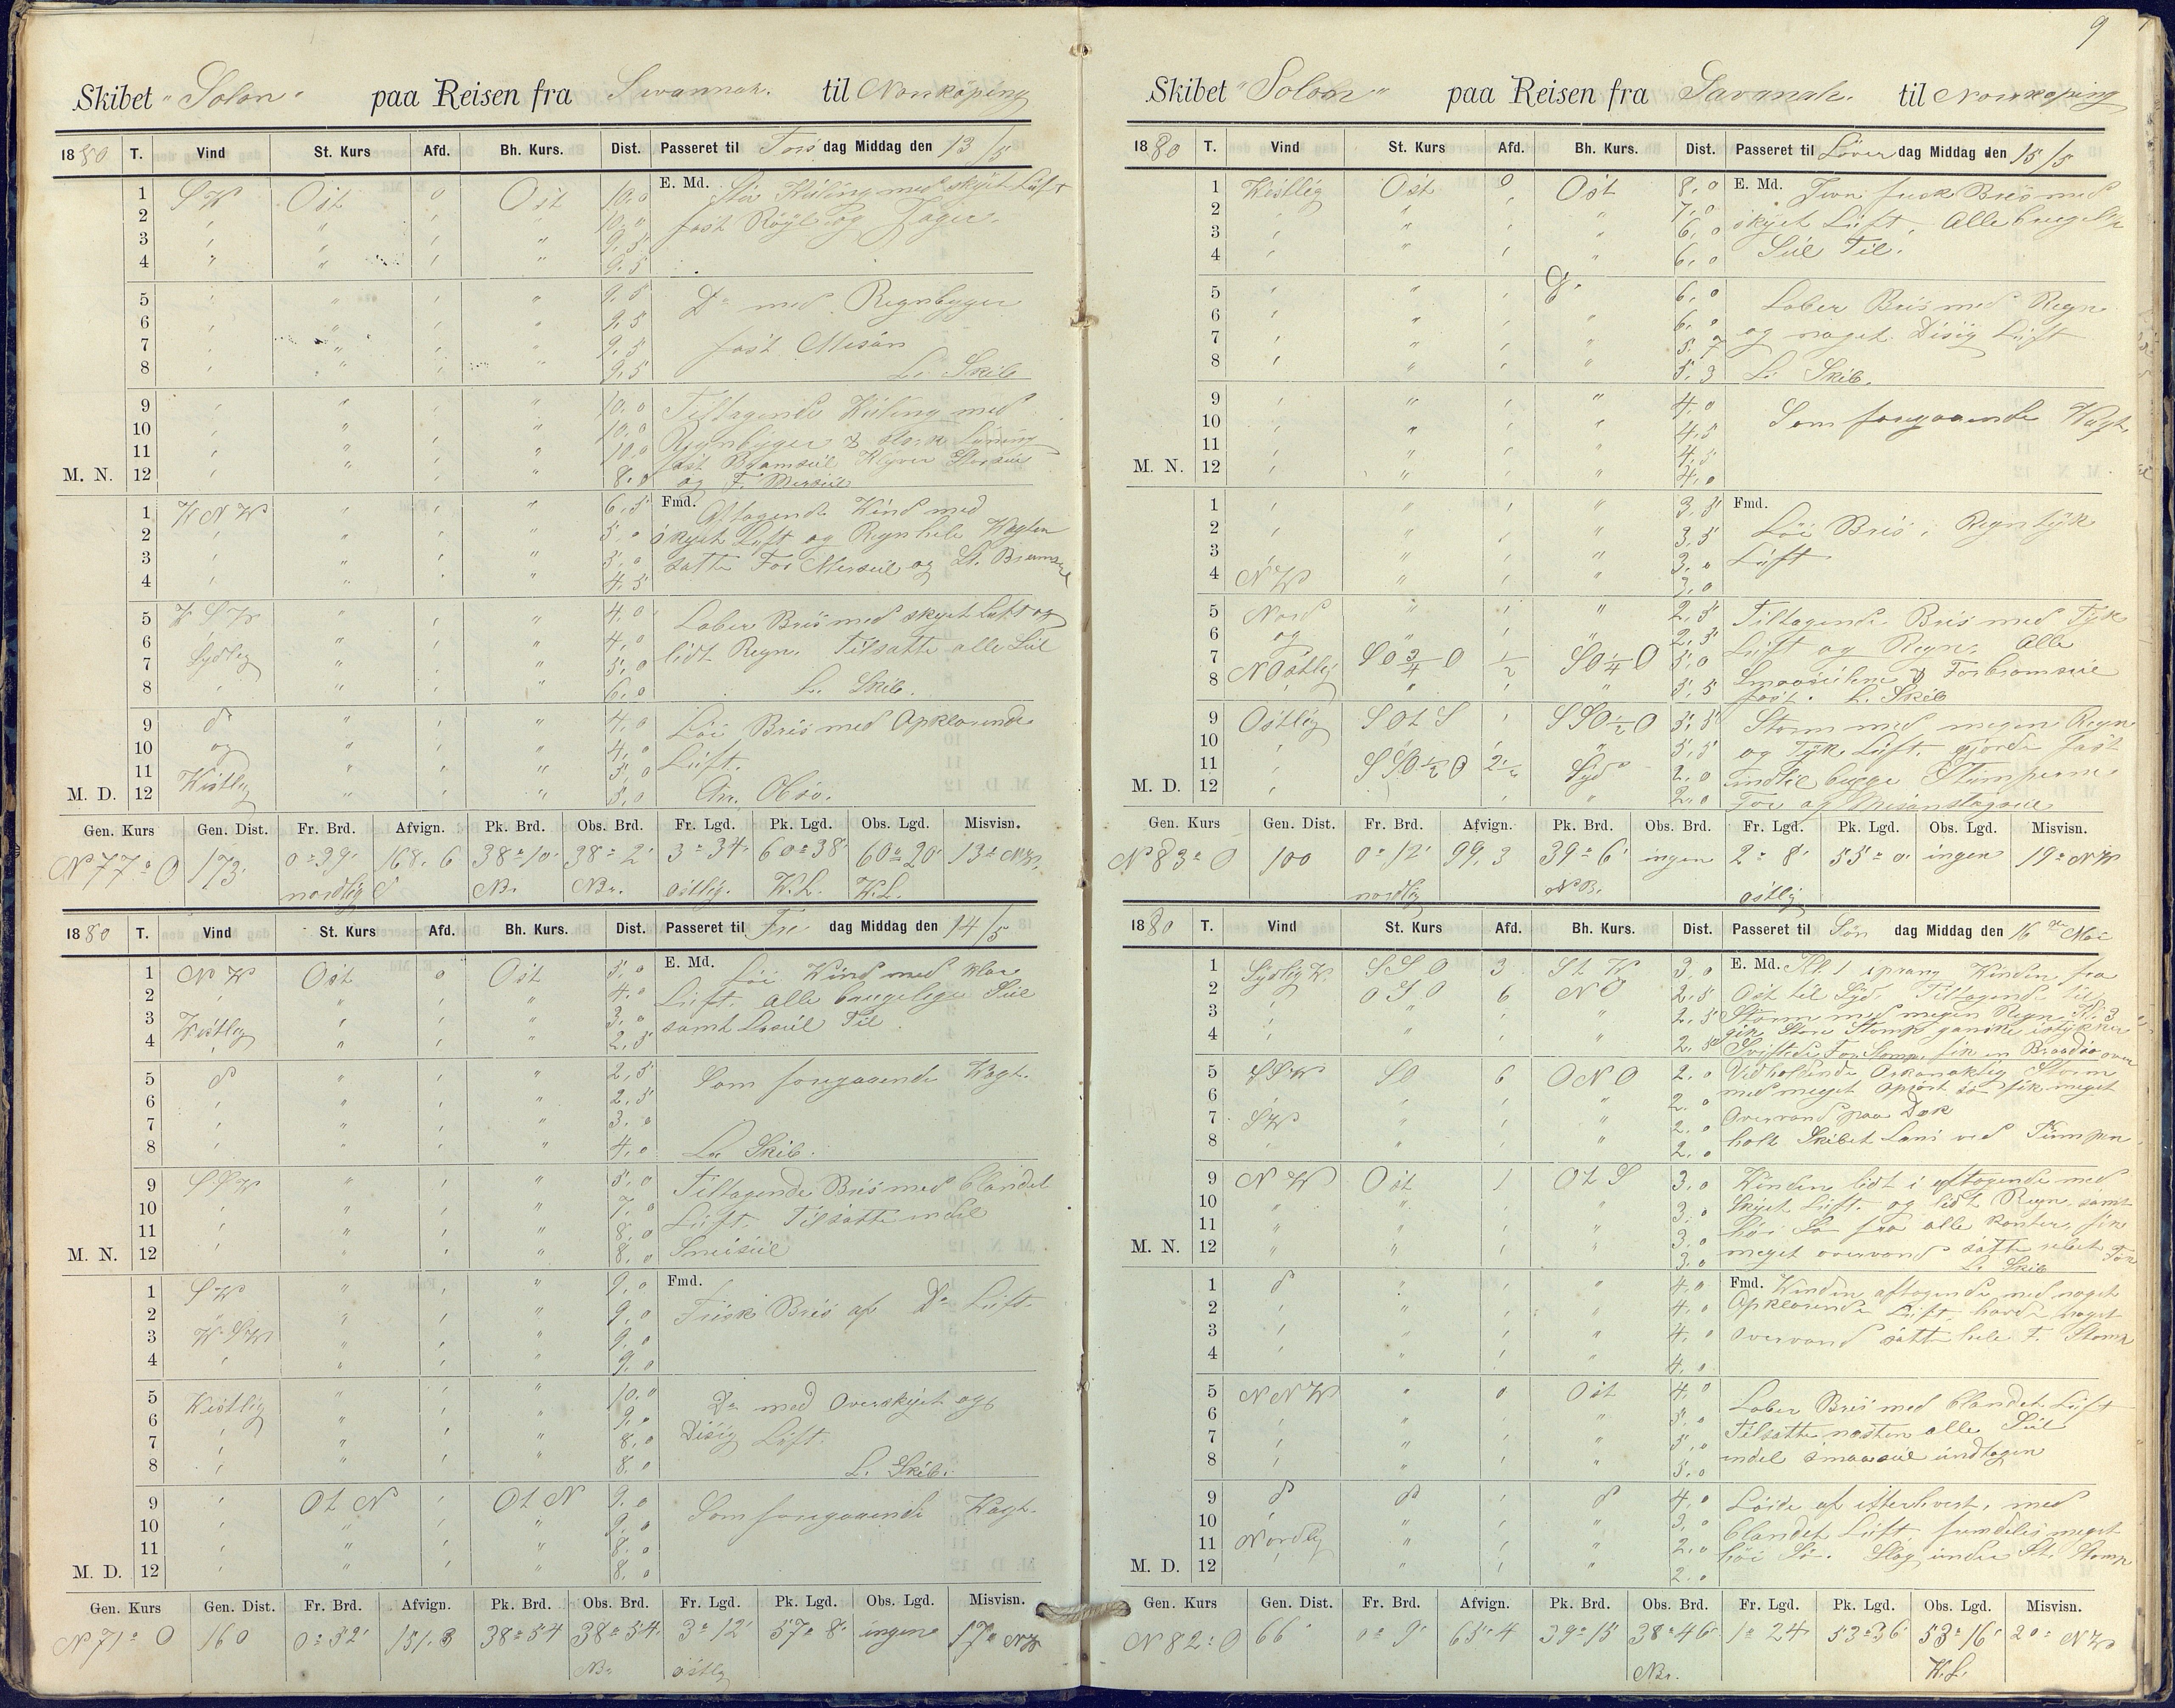 9
Skibet "Solon" paa Reisen fra Savannah. til Norrköping
1880 T. Vind St. Kurs Afd. Bh. Kurs. Dist. Passeret til Tors dag Middag den 13/5
1 SW Ost 0 Ost 10,0 E. Md. Stiv Kuling med skyet Luft
2 " " " " 10,0 fast Røyl og Jager.
3 " " " " 9,5
4 " " " " 9,5
5 " " " " 9,5 Do med Regnbyger
6 " " " " 9,5
7 " " " " 9,5 fast Mesan
8 " " " " 9,5 L. Skib
9 " " " " 10,0 Tiltagende Kuling med
10 " " " " 10,0 Regnbyger & Lyning
11 " " " " 10,0 fast Bramseil Klyver Storseil
M. N. 12 " " " " 8,0 og F. Merseil
1 WNW " " " 6,5 Fmd. Aftagende Vind med
2 " " " " 5,0 skyet Luft og Regn hele Vagten
3 " " " " 5,0 satte For Merseil og St. Bramseil
4 " " " " 4,5
5 WSW " " " 4,0 Laber Bris med skyet Luft og
6 " " " " 4,0 lidt Regn. Tilsatte alle Seil
7 Sydlig " " " 5,0
8 " " " " 6,0 L. Skib.
9 do " " " 4,0 Løi Bris med Opklarende
10 og " " " 4,0 Luft.
11 Vestlig " " " 5,0
M. D. 12 " " " 5,0 An. Obsv.
Gen. Kurs Gen. Dist. Fr. Brd. Afvign. Pk. Brd. Obs. Brd. Fr. Lgd. Pk. Lgd. Obs. Lgd. Misvisn.
N 77° O 173' 0°39' 168,6 38°10' 38°2' 3°34' 60°38' 60°20' 13° NW.
nordlig Br. Br. østlig. W.L. W.L.
1880 T. Vind St. Kurs Afd. Bh. Kurs. Dist. Passeret til Fre dag Middag den 14/5
1 NW Ost 0 Ost 5,0 E. Md. Løi Vind med klar
2 " " " " 4,0 Luft. alle brugelige Seil
3 Vestlig " " " 3,0 samt Læseil Til
4 " " " " 2,5
5 do " " " 2,5 Som foregaaende Vagt.
6 " " " " 2,5
7 " " " " 3,0
8 " " " " 4,0 L. Skib.
9 SSW " " " 5,0 Tiltagende Bris med blandet
10 " " " " 7,0 Luft. Tilsatte indel
11 " " " " 8,0 Smeiseil
M. N. 12 " " " " 8,0
1 SW " " " 9,0 Fmd.
2 " " " " 9,0 Frisk Bris af Do Luft.
3 WSW " " " 9,0
4 " " " " 9,0
5 Vestlig " " " 10,0 Do med Overskyet og
6 " " " " 9,0 Disig Luft.
7 " " " " 8,0
8 " " " " 8,0 L. Skib.
9 " Ot N " Ot N 9,0 Som foregaaende Vagt.
10 " " " " 9,0
11 " " " " 8,0
M. D. 12 " " " " 8,0
Gen. Kurs Gen. Dist. Fr. Brd. Afvign. Pk. Brd. Obs. Brd. Fr. Lgd. Pk. Lgd. Obs. Lgd. Misvisn.
N 71° O 160 0°52' 151,3 38°54 38°54' 3°12' 57°8' ingen 17° NW
Br. østlig
Skibet "Solon" paa Reisen fra Savanah. til Norrkøping
1880 T. Vind St. Kurs Afd. Bh. Kurs. Dist. Passeret til Løver dag Middag den 15/5
1 Westlig Ost 0 Ost 8,0 E. Md. Jevn frisk Bris med
2 " " " " 7,0 skyet Luft. Alle brugelige
3 " " " " 6,0 Seil Til.
4 " " " " 6,0
5 " " " " 6,0 Laber Bris med Regn
6 " " " " 6,0 og noget Disig Luft
7 " " " " 5,7
8 " " " " 5,3 L. Skib.
9 " " " " 4,0 Som foregaaende Vagt.
10 " " " " 4,5
11 " " " " 4,5
M. N. 12 " " " " 4,0
1 " " " " 3,5 Fmd.
2 " " " " 3,5 Løi Bris, Regntyk
3 " " " " 3,0 Luft
4 NW " " " 3,0
5 Nord " " " 2,5 Tiltagende Bris med Tyk
6 og " " " 2,5 Luft og Regn. Alle
7 N Ostlig SO 3/4 O 1/2 SO 1/4 O 5,0 Smaaseilene & Forbramseil
8 " " " 5,5 fast. L. Skib
9 Ostlig SOtS " SSO 1/2 O 5,5 Storm med megen Regn
10 " " " " 5,5 og Tyk Luft. gjorde fast
11 " SSO 1/2 O 2 1/2 Syd 2,0 indtil begge Stumperne
M. D. 12 " " " 2,0 For og Mesanstagseil
Gen. Kurs Gen. Dist. Fr. Brd. Afvign. Pk. Brd. Obs. Brd. Fr. Lgd. Pk. Lgd. Obs. Lgd. Misvisn.
N 83° O 100 0°12' 99,3 39°6' ingen 2°8' 55°0' ingen 19° NW
nordlig NB. østlig
1880 T. Vind St. Kurs Afd. Bh. Kurs. Dist. Passeret til Søn dag Middag den 16de Mai
1 Sydlig W. SSO 3 St W 3,0 E. Md. Kl. 1 isprang Vinden fra
2 " OSO 6 NO 2,5 Ost til Syd. Tiltagende til
3 " " " " 2,5 Storm med megen Regn Kl. 3
4 " " " " 2,5 gik Store Stomp ganske istykker
Sviftede For Stomp. fik en Braadsø over
5 SSW SO 6 ONO 2,0 Vedholdende Orkanaktig Storm
6 " " " " 2,0 med meget oprørt sø fik meget
7 SW " " " 2,0 Overvand paa Dæk
8 " " " " 2,0 holt Skibet Læns ved Pumpen
9 NW Ost 1 Ot S 3,0 Vinden lidt i aftagende med
10 " " " " 3,0 Skyet Luft og lidt Regn samt
11 " " " " 3,0 høi Sø fra alle kanter, fik
M. N. 12 " " " " 3,0 meget overvand satte rebet For
L. Skib
1 do " " " 4,0 Fmd. Vinden aftagende med noget
2 " " " " 4,0 Opklarende Luft, havde noget
3 " " " " 4,0 overvand satte hele F. Stomp
4 " " " " 4,0
5 NNW " 0 Ost 4,0 Laber Bris med blandet Luft
6 " " " " 5,0 Tilsatte næsten alle Seil
7 " " " " 5,0 indel smaaseil undtagen
8 " " " " 5,0
9 do do " do 4,0 Løide af efterhvert, med
10 " " " " 3,0 blandet Luft fremdeles meget
11 Nordlig " " " 2,0 høi Sø. Slog under St. Stomp
M. D. 12 " " " " 2,0
Gen. Kurs Gen. Dist. Fr. Brd. Afvign. Pk. Brd. Obs. Brd. Fr. Lgd. Pk. Lgd. Obs. Lgd. Misvisn.
N 82° O 66' 0°9' 65,4 39°15 38°46' 1°24 53°36' 53°16' 20° NW
Br. W.L.